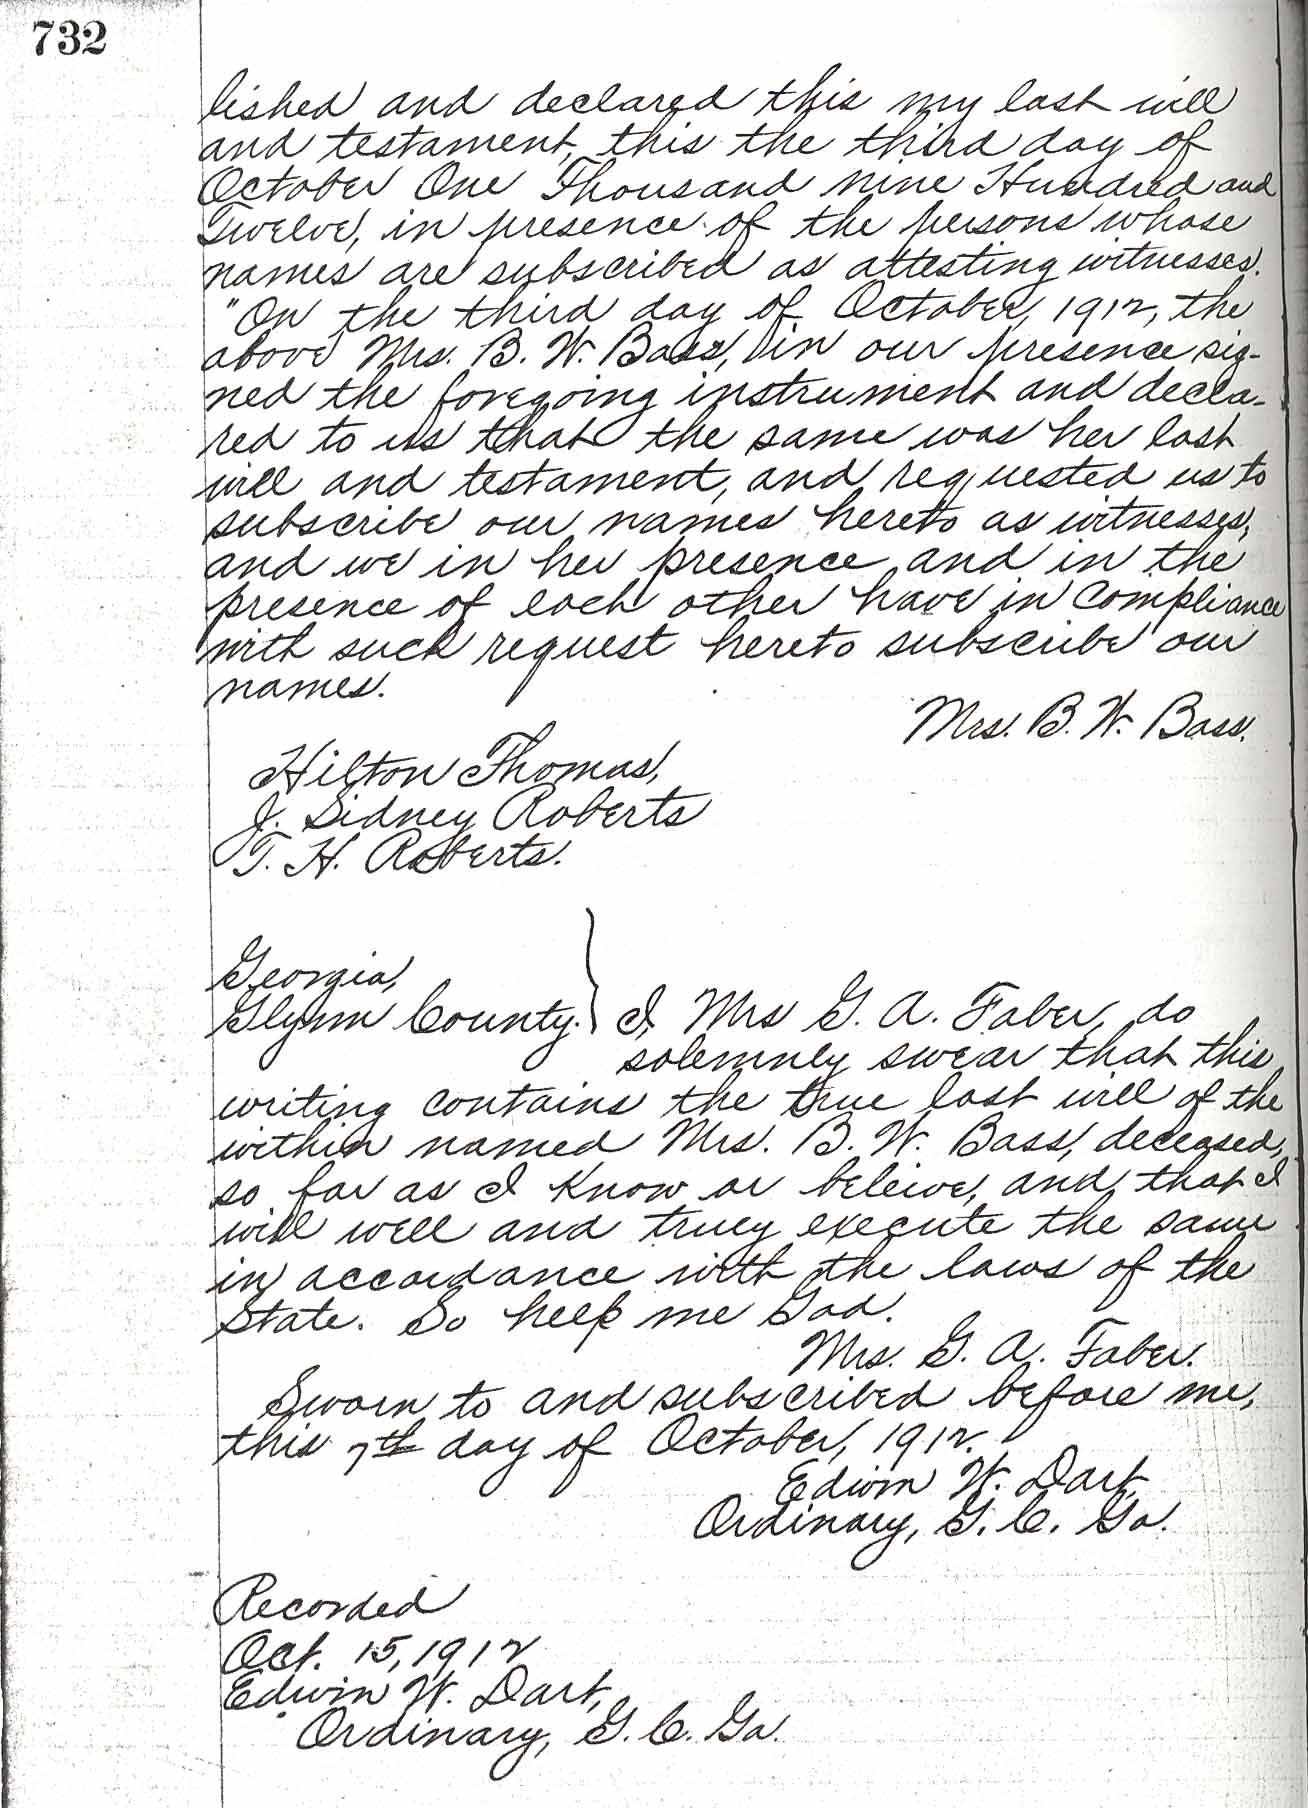 732
lished and declared this my last will
and testament, this the third day of
October One Thousand nine Hundred and
Twelve, in presence of the persons whose
names are subscribed as attesting witnesses.
"On the third day of October, 1912, the
above Mrs. B. W. Bass, in our presence sig-
ned the foregoing instrument and decla-
red to us that the same was her last
will and testament, and requested us to
subscribe our names hereto as witnesses,
and we in her presence and in the
presence of each other have in compliance
with such request hereto subscribe our
names.
Mrs. B. W. Bass.
Hilton Thomas,
J. Sidney Roberts
T. H. Roberts.
Georgia,
Glynn County. } I, Mrs G. A. Faber, do
solemnly swear that this
writing contains the true last will of the
within named Mrs. B. W. Bass, deceased,
so far as I know or beleive, and that I
will well and truey execute the same
in accordance with the laws of the
State. So help me God.
Mrs. G. A. Faber.
Sworn to and subscribed before me,
this 7th day of October, 1912.
Edwin W. Dart,
Ordinary, G. C. Ga.
Recorded
Oct. 15, 1912
Edwin W. Dart,
Ordinary, G. C. Ga.